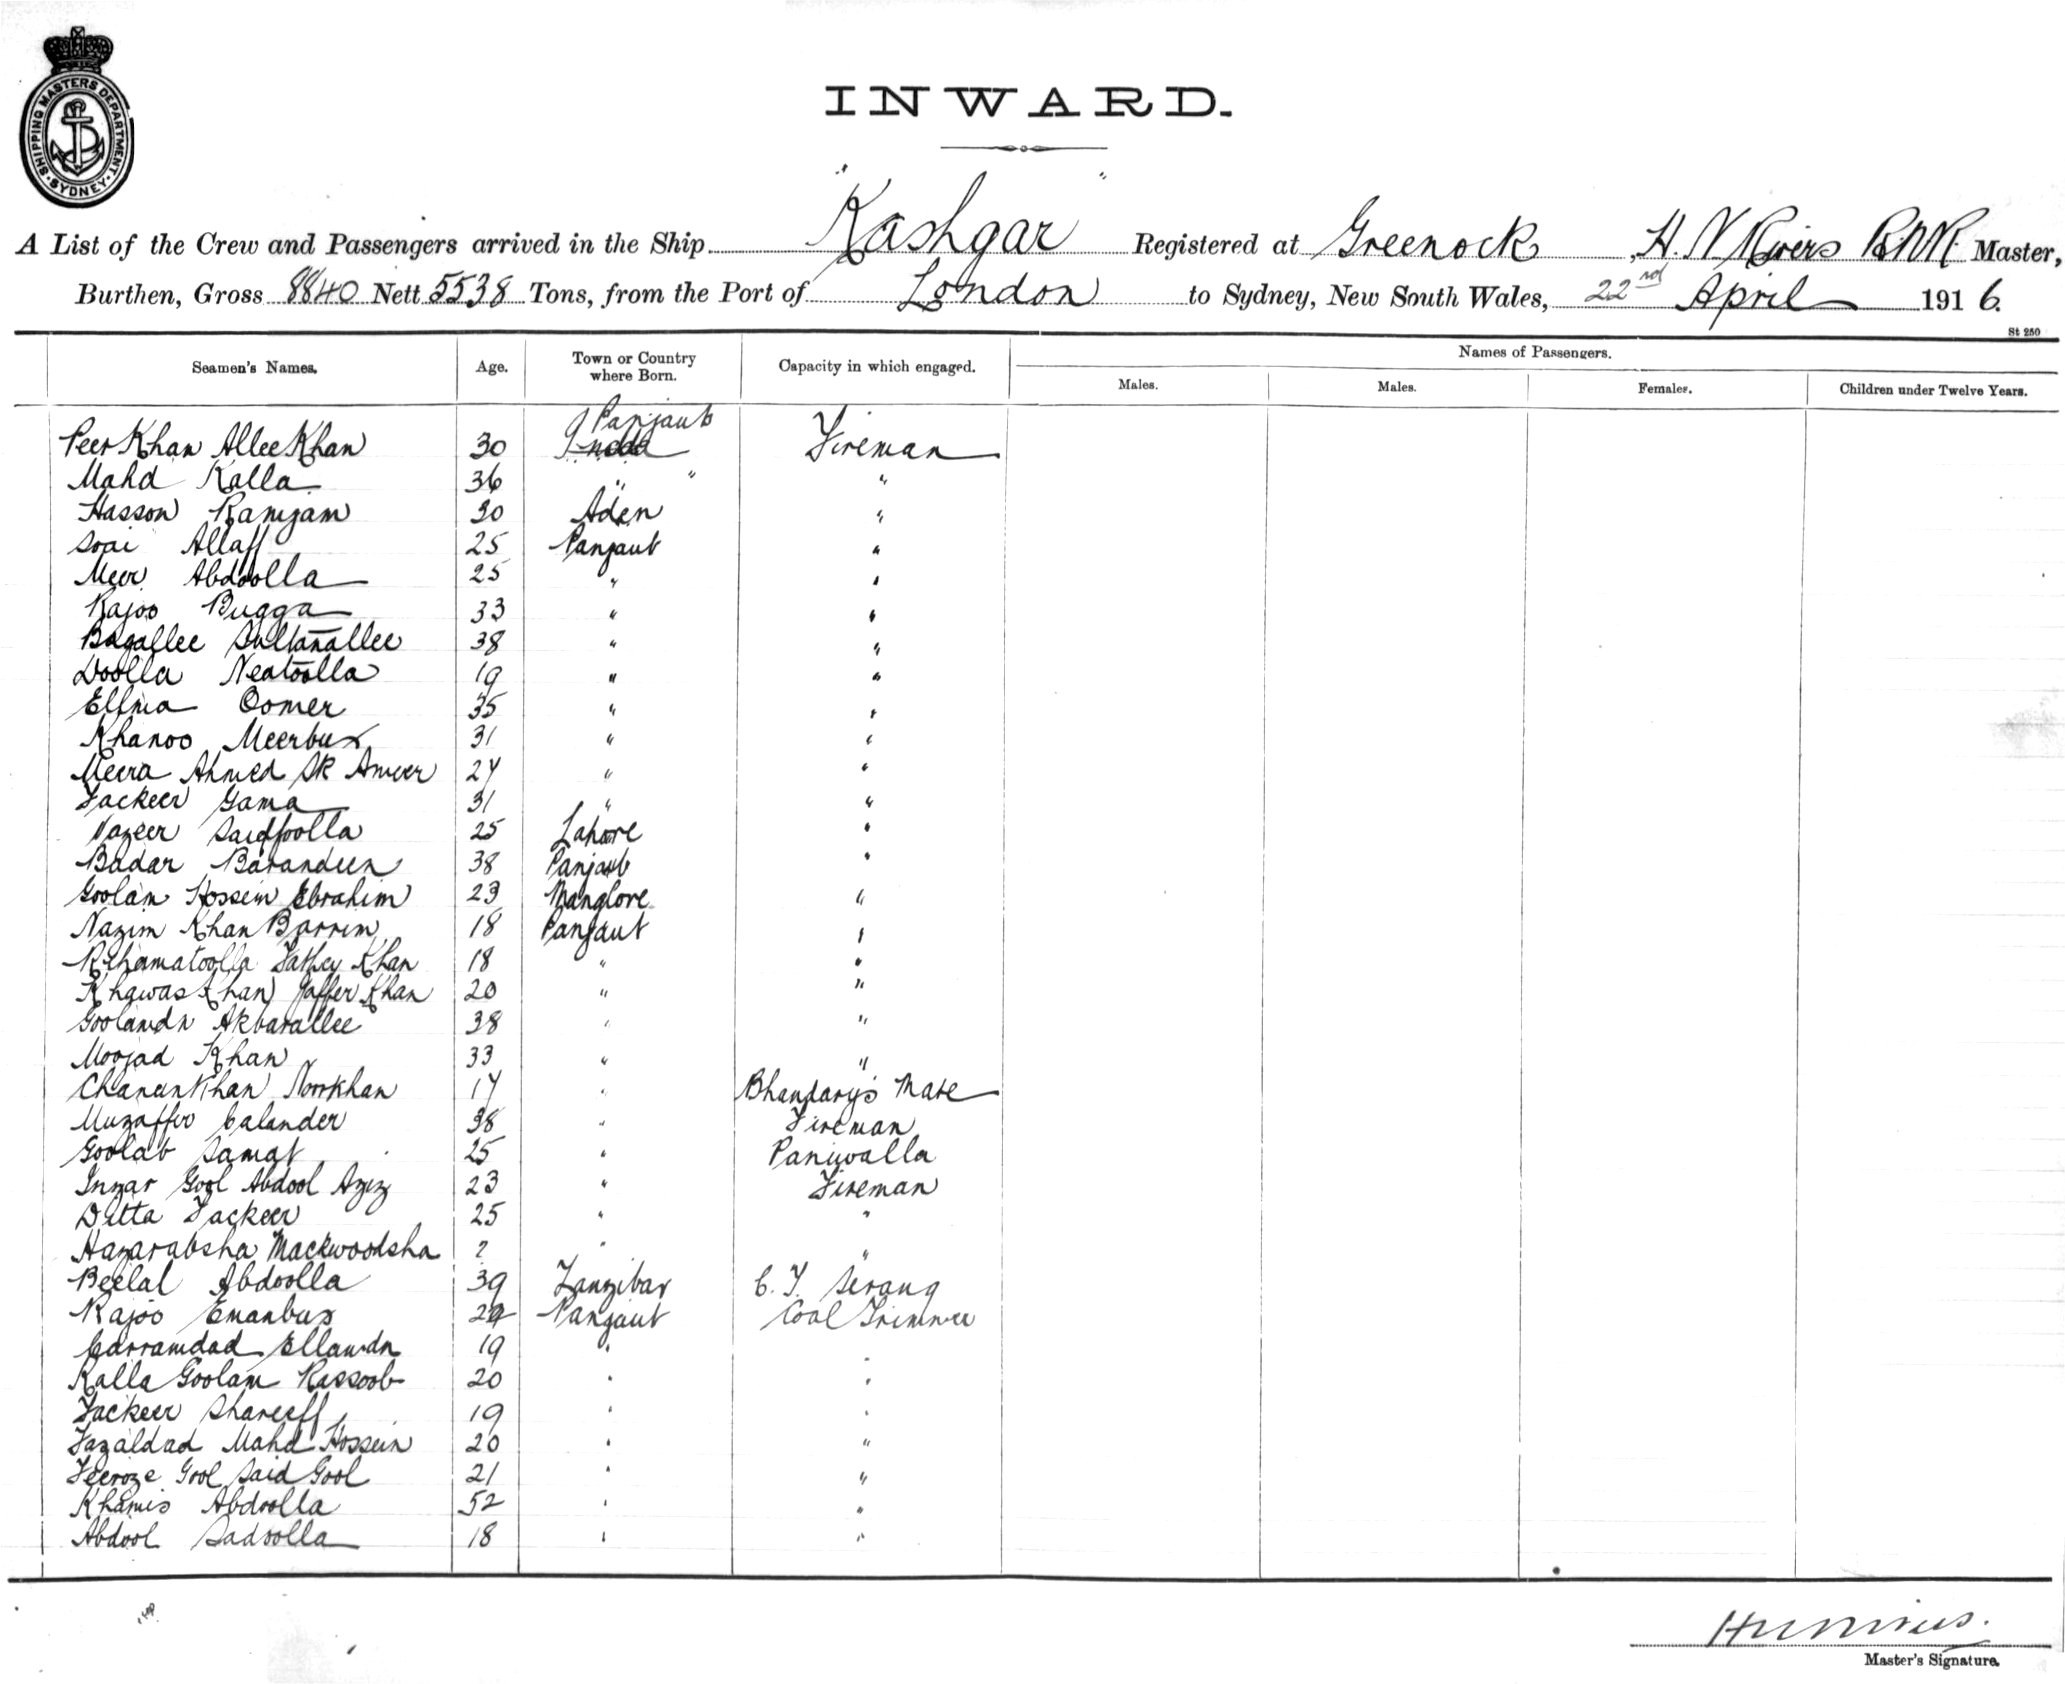 SHIPPING MASTERS DEPARTMENT. SYDNEY
INWARD.
A List of the Crew and Passengers arrived in the Ship "Kashgar" Registered at Greenock, H. N Rivers RNR Master,
Burthen, Gross 8840 Nett 5538 Tons, from the Port of London to Sydney, New South Wales, 22nd April 1916.
St 250
Seamen's Names. Age. Town or Country where Born. Capacity in which engaged. Names of Passengers.
Males. Males. Females. Children under Twelve Years.
Panjaub
Peer Khan Allee Khan 30 India Fireman
Mahd Kalla 36 " " "
Hasson Ramjam 30 Aden "
Soai Allaff 25 Panjaub "
Meer Abdoolla 25 " "
Rajoo Bugga 33 " "
Bagallee Sultanallee 38 " "
Doolla Neatoolla 19 " "
Ellma Oomer 35 " "
Khanoo Meerbux 31 " "
Meera Ahmed Sk Ameer 27 " "
Fackeer Gama 31 " "
Nazeer Saidfoolla 25 Lahore "
Badar Barandeen 38 Panjaub "
Goolam Hossein Ebrahim 23 Manglore "
Nazim Khan Barrim 18 Panjaub "
Rehamatoolla Fathey Khan 18 " "
Khawas Khan Jaffer Khan 20 " "
Goolamdn Akbarallee 38 " "
Moojad Khan 33 " "
Chanan Khan Noorkhan 17 " Bhandary's Mate
Muzaffer Calander 38 " Fireman
Goolab Samat 25 " Paniwalla
Inzar Gool Abdool Aziz 23 " Fireman
Ditta Fackeer 25 " "
Hazarabsha Mackwoodsha 2 " "
Beelal Abdoolla 39 Zanzibar C. T. Serang
Rajoo Emanbux 29 Panjaub Coal Trimmer
Carramdad Ellamdn 19 " "
Kalla Goolam Rassool 20 " "
Fackeer Shareeff 19 " "
Fazaldad Mahd Hossein 20 " "
Feeroze Gool Said Gool 21 " "
Khamis Abdoolla 52 " "
Abdool Sadoolla 18 " "
Master's Signature.